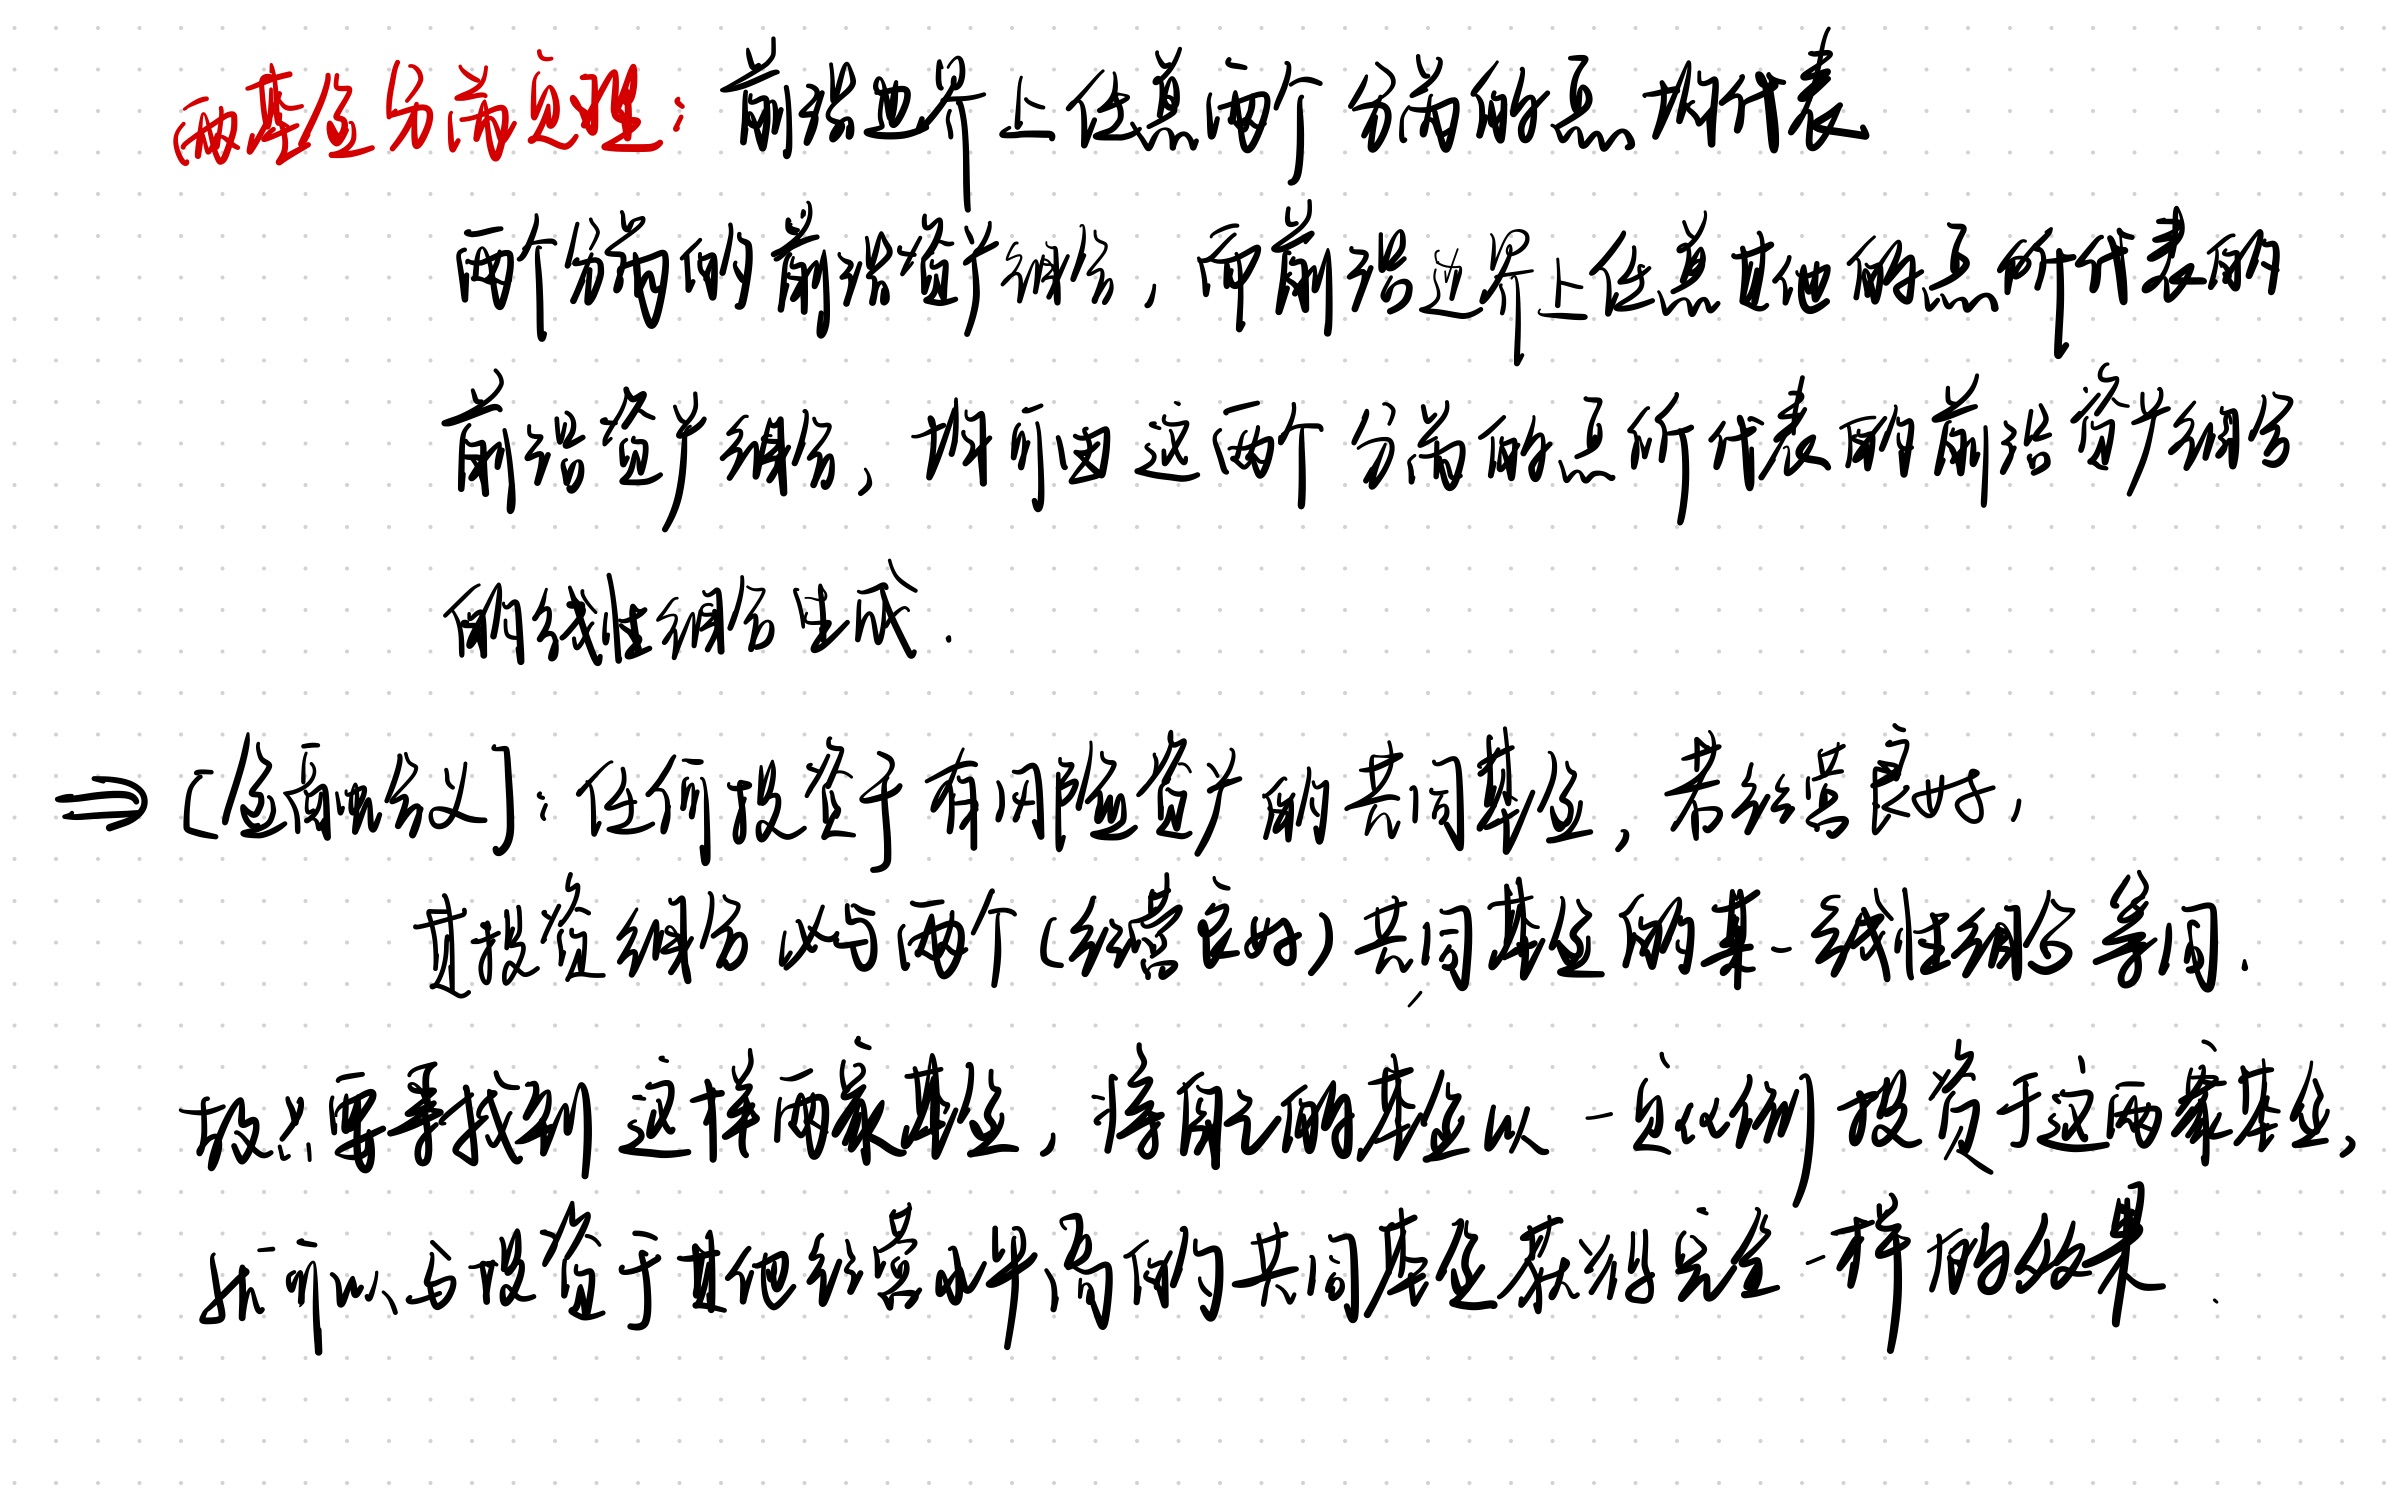 两基金分离定理：前沿边界上任意两个分离的点均代表
两个分离的前沿资产组合，而前沿边界上任意其他的点所代表的
前沿资产组合，均可由这两个分离的点所代表的前沿资产组合
的线性组合生成.
⇒ [金融意义]：任何投资于有风险资产的共同基金，若经营良好，
其投资组合必与两个(经营良好)共同基金的某一线性组合等同.
故只要寻找到这样两家基金，将自己的基金以一定比例投资于这两家基金，
就可以与投资于其他经营水平高的共同基金获得完全一样的效果.